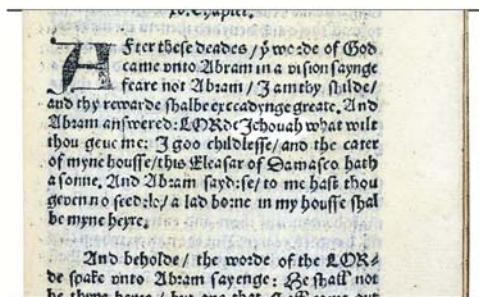 xv. Chapter.
After these deades / ẏ worde of God
came vnto Abram in a vision saynge
feare not Abram / I am thy shilde /
and thy rewarde shalbe exceadynge greate. And
Abram answered: LORde Jehouah what wilt
thou geue me: I goo childlesse / and the cater
of myne housse / this Eleasar of Damasco hath
a sonne. And Abram sayd: se / to me hast thou
geven no seed: lo / a lad borne in my housse shal
be myne heyre.
And beholde / the worde of the LOR-
de spake vnto Abram sayenge: He shall not
be thyne heyre / but one that